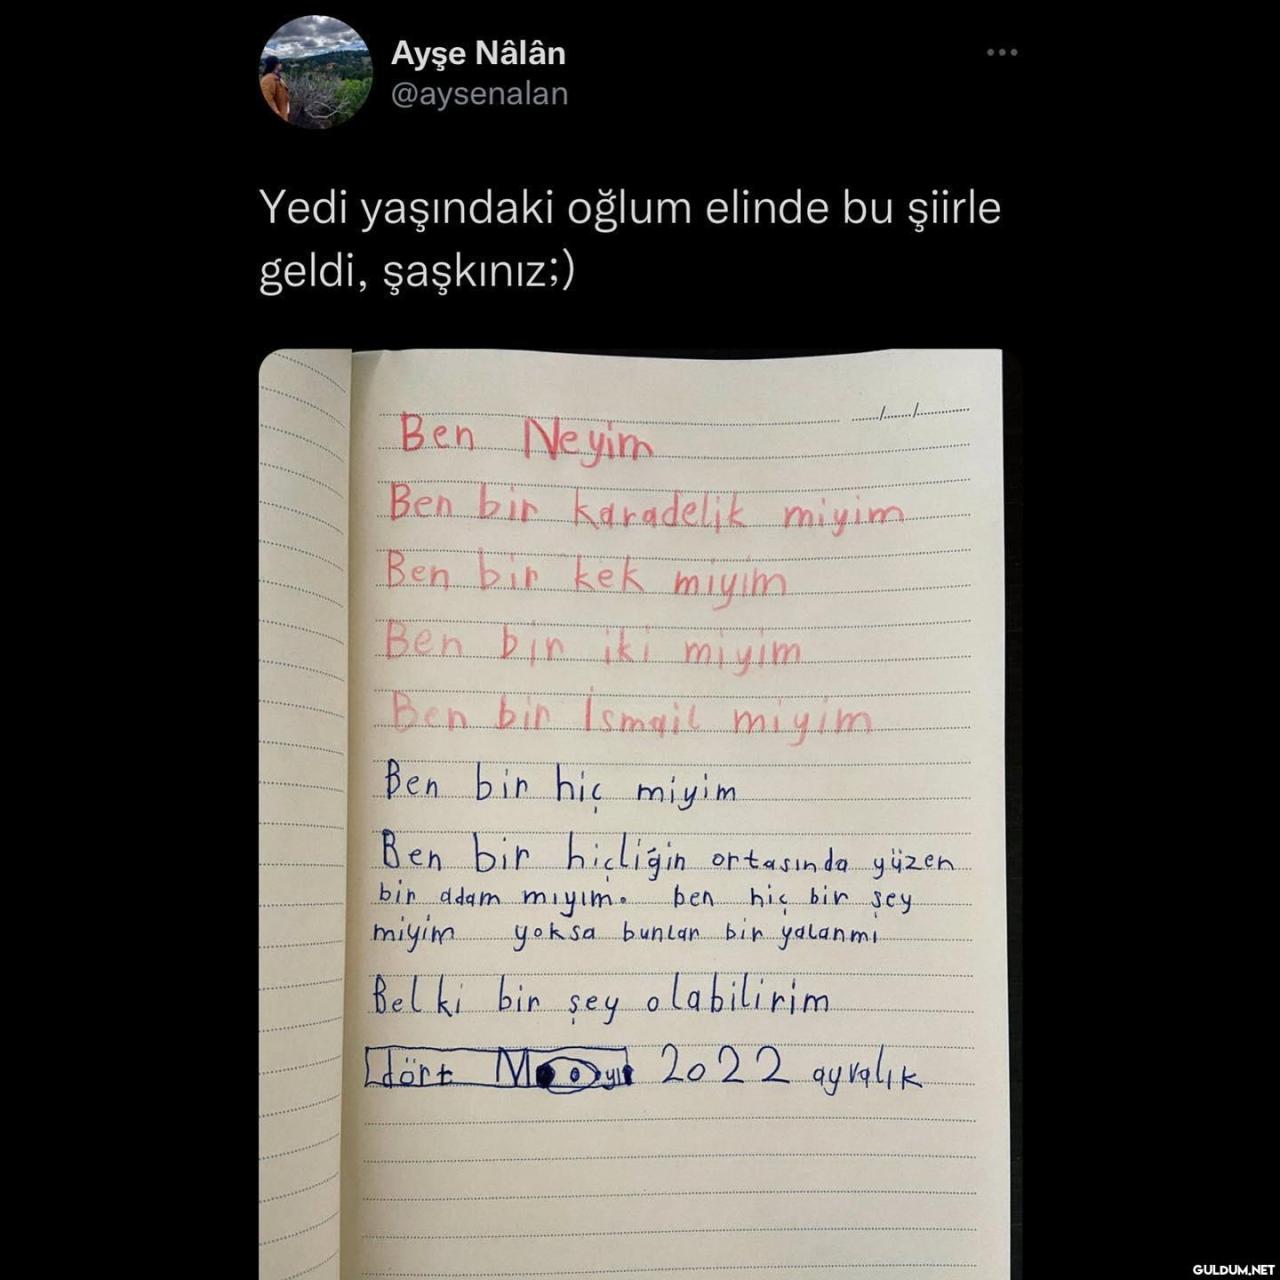 Ayşe Nâlân
@aysenalan
Yedi yaşındaki oğlum elinde bu şiirle
geldi, şaşkınız;)
Ben Neyim
Ben bir karadelik miyim
Ben bir kek miyim
Ben bir iki miyim
Ben bir İsmail miyim
Ben bir hiç miyim
Ben bir hiçliğin ortasında yüzen
bir adam mıyım. ben hiç bir şey
miyim yoksa bunlar bir yalanmı
Belki bir şey olabilirim
dört 2022 ayvalık
GULDUM.NET